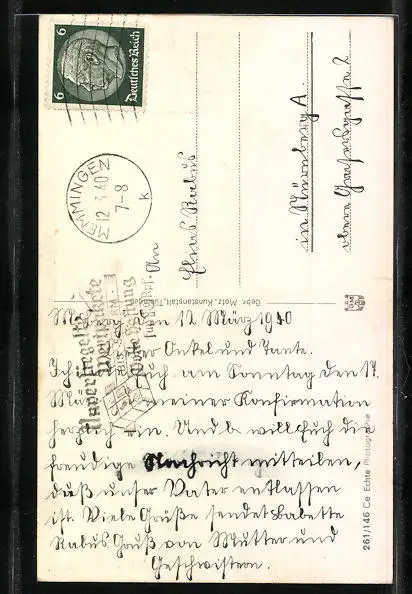 6 Deutsches Reich 6
MEMMINGEN
12.3.40
7-8
k
An
Rabus
in Nürnberg A.
obere
Gebr. Metz, Kunstanstalt, Tübingen
den 12 März 1940
Onkel und Tante.
Ich Euch am Sonntag den 17.
meiner Konfirmation
herzlich ein. Und will Euch die
freudige Nachricht mitteilen,
daß unser Vater entlassen
ist. Viele Grüße sendet Babette
Rabus Gruß von Mutter und
Geschwistern.
261/146 Ce Echte Photographie